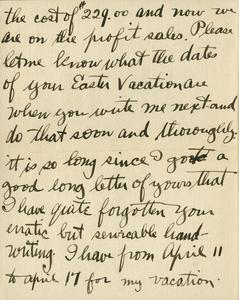 the cost of $229.00 and now we
are on the profit sales. Please
let me know what the dates
of your Easter Vacation are
when you write me next and
do that soon and thoroughly.
it is so long since I got a
good long letter of yours, that
I have quite forgotten your
erratic but servicable hand-
writing. I have from April 11
to april 17 for my vacation.